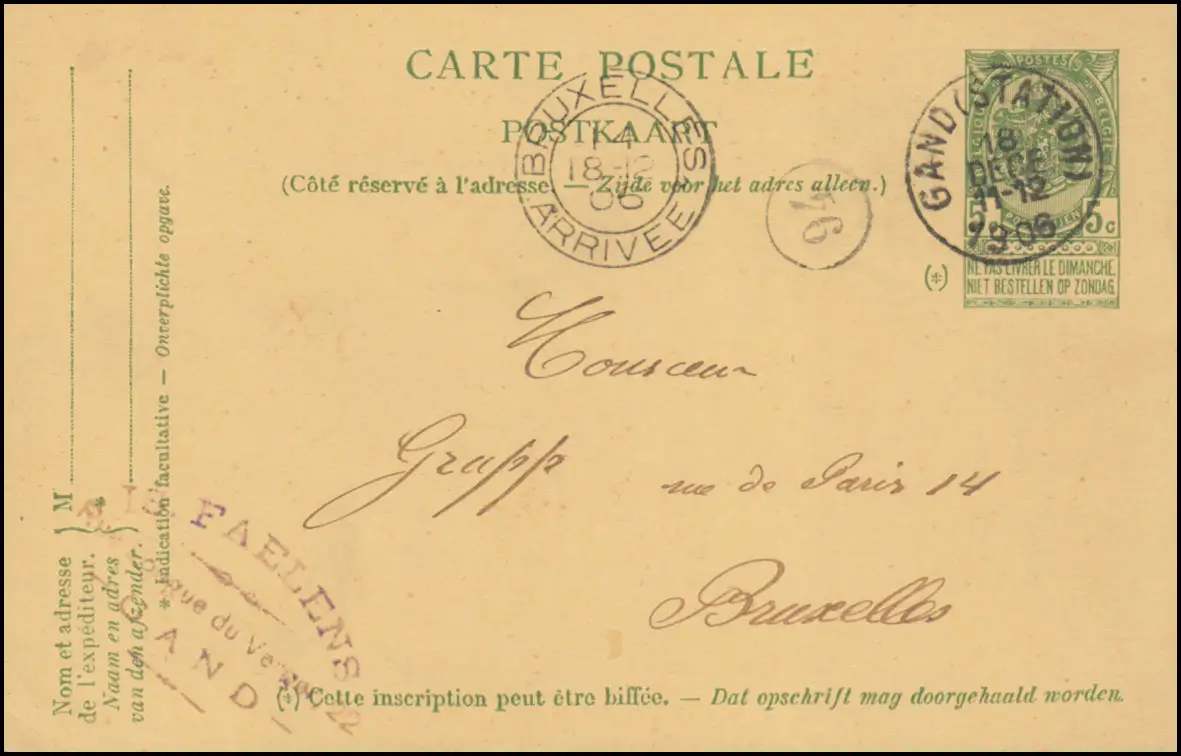 CARTE POSTALE
POSTKAART
(Côté réservé à l'adresse. — Zijde voor het adres alleen.)
BRUXELLES
14
18-12
06
ARRIVEE
76
POSTES
GAND (STATION)
18
DECE
11-12
1906
5 5c
NE PAS LIVRER LE DIMANCHE
NIET BESTELLEN OP ZONDAG
(*)
Monsieur
Grupp rue de Paris 14
Bruxelles
Nom et adresse
de l'expéditeur.
Naam en adres
van den afzender.
} M
} *
* Indication facultative — Onverplichte opgave.
FAELENS
rue du
GAND
(*) Cette inscription peut être biffée. — Dat opschrift mag doorgehaald worden.